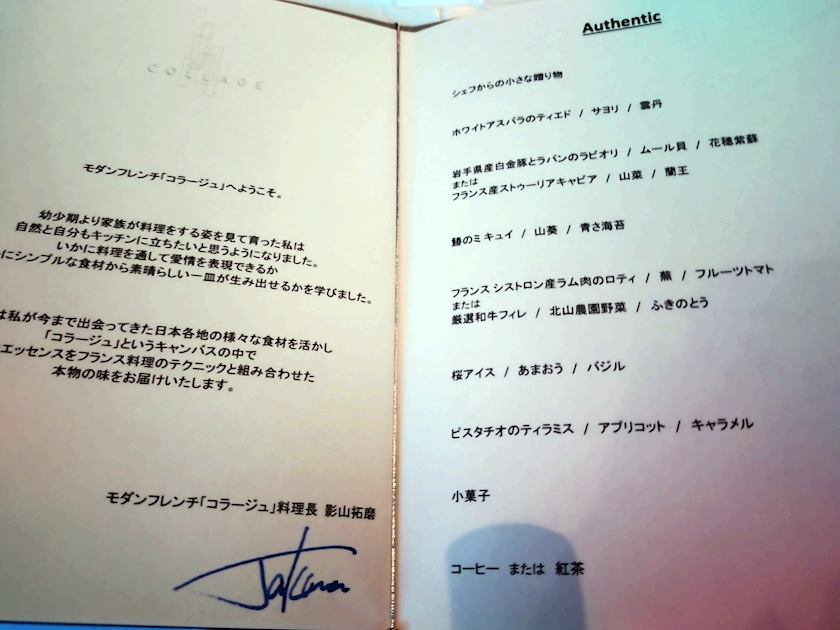 COLLAGE
モダンフレンチ「コラージュ」へようこそ。
幼少期より家族が料理をする姿を見て育った私は
自然と自分もキッチンに立ちたいと思うようになりました。
いかに料理を通して愛情を表現できるか
にシンプルな食材から素晴らしい一皿が生み出せるかを学びました。
は私が今まで出会ってきた日本各地の様々な食材を活かし
「コラージュ」というキャンバスの中で
エッセンスをフランス料理のテクニックと組み合わせた
本物の味をお届けいたします。
モダンフレンチ「コラージュ」料理長 影山拓磨
Authentic
シェフからの小さな贈り物
ホワイトアスパラのティエド / サヨリ / 雲丹
岩手県産白金豚とラパンのラビオリ / ムール貝 / 花穂紫蘇
または
フランス産ストゥーリアキャビア / 山菜 / 蘭王
鰆のミキュイ / 山葵 / 青さ海苔
フランス シストロン産ラム肉のロティ / 蕪 / フルーツトマト
または
厳選和牛フィレ / 北山農園野菜 / ふきのとう
桜アイス / あまおう / バジル
ピスタチオのティラミス / アプリコット / キャラメル
小菓子
コーヒー または 紅茶